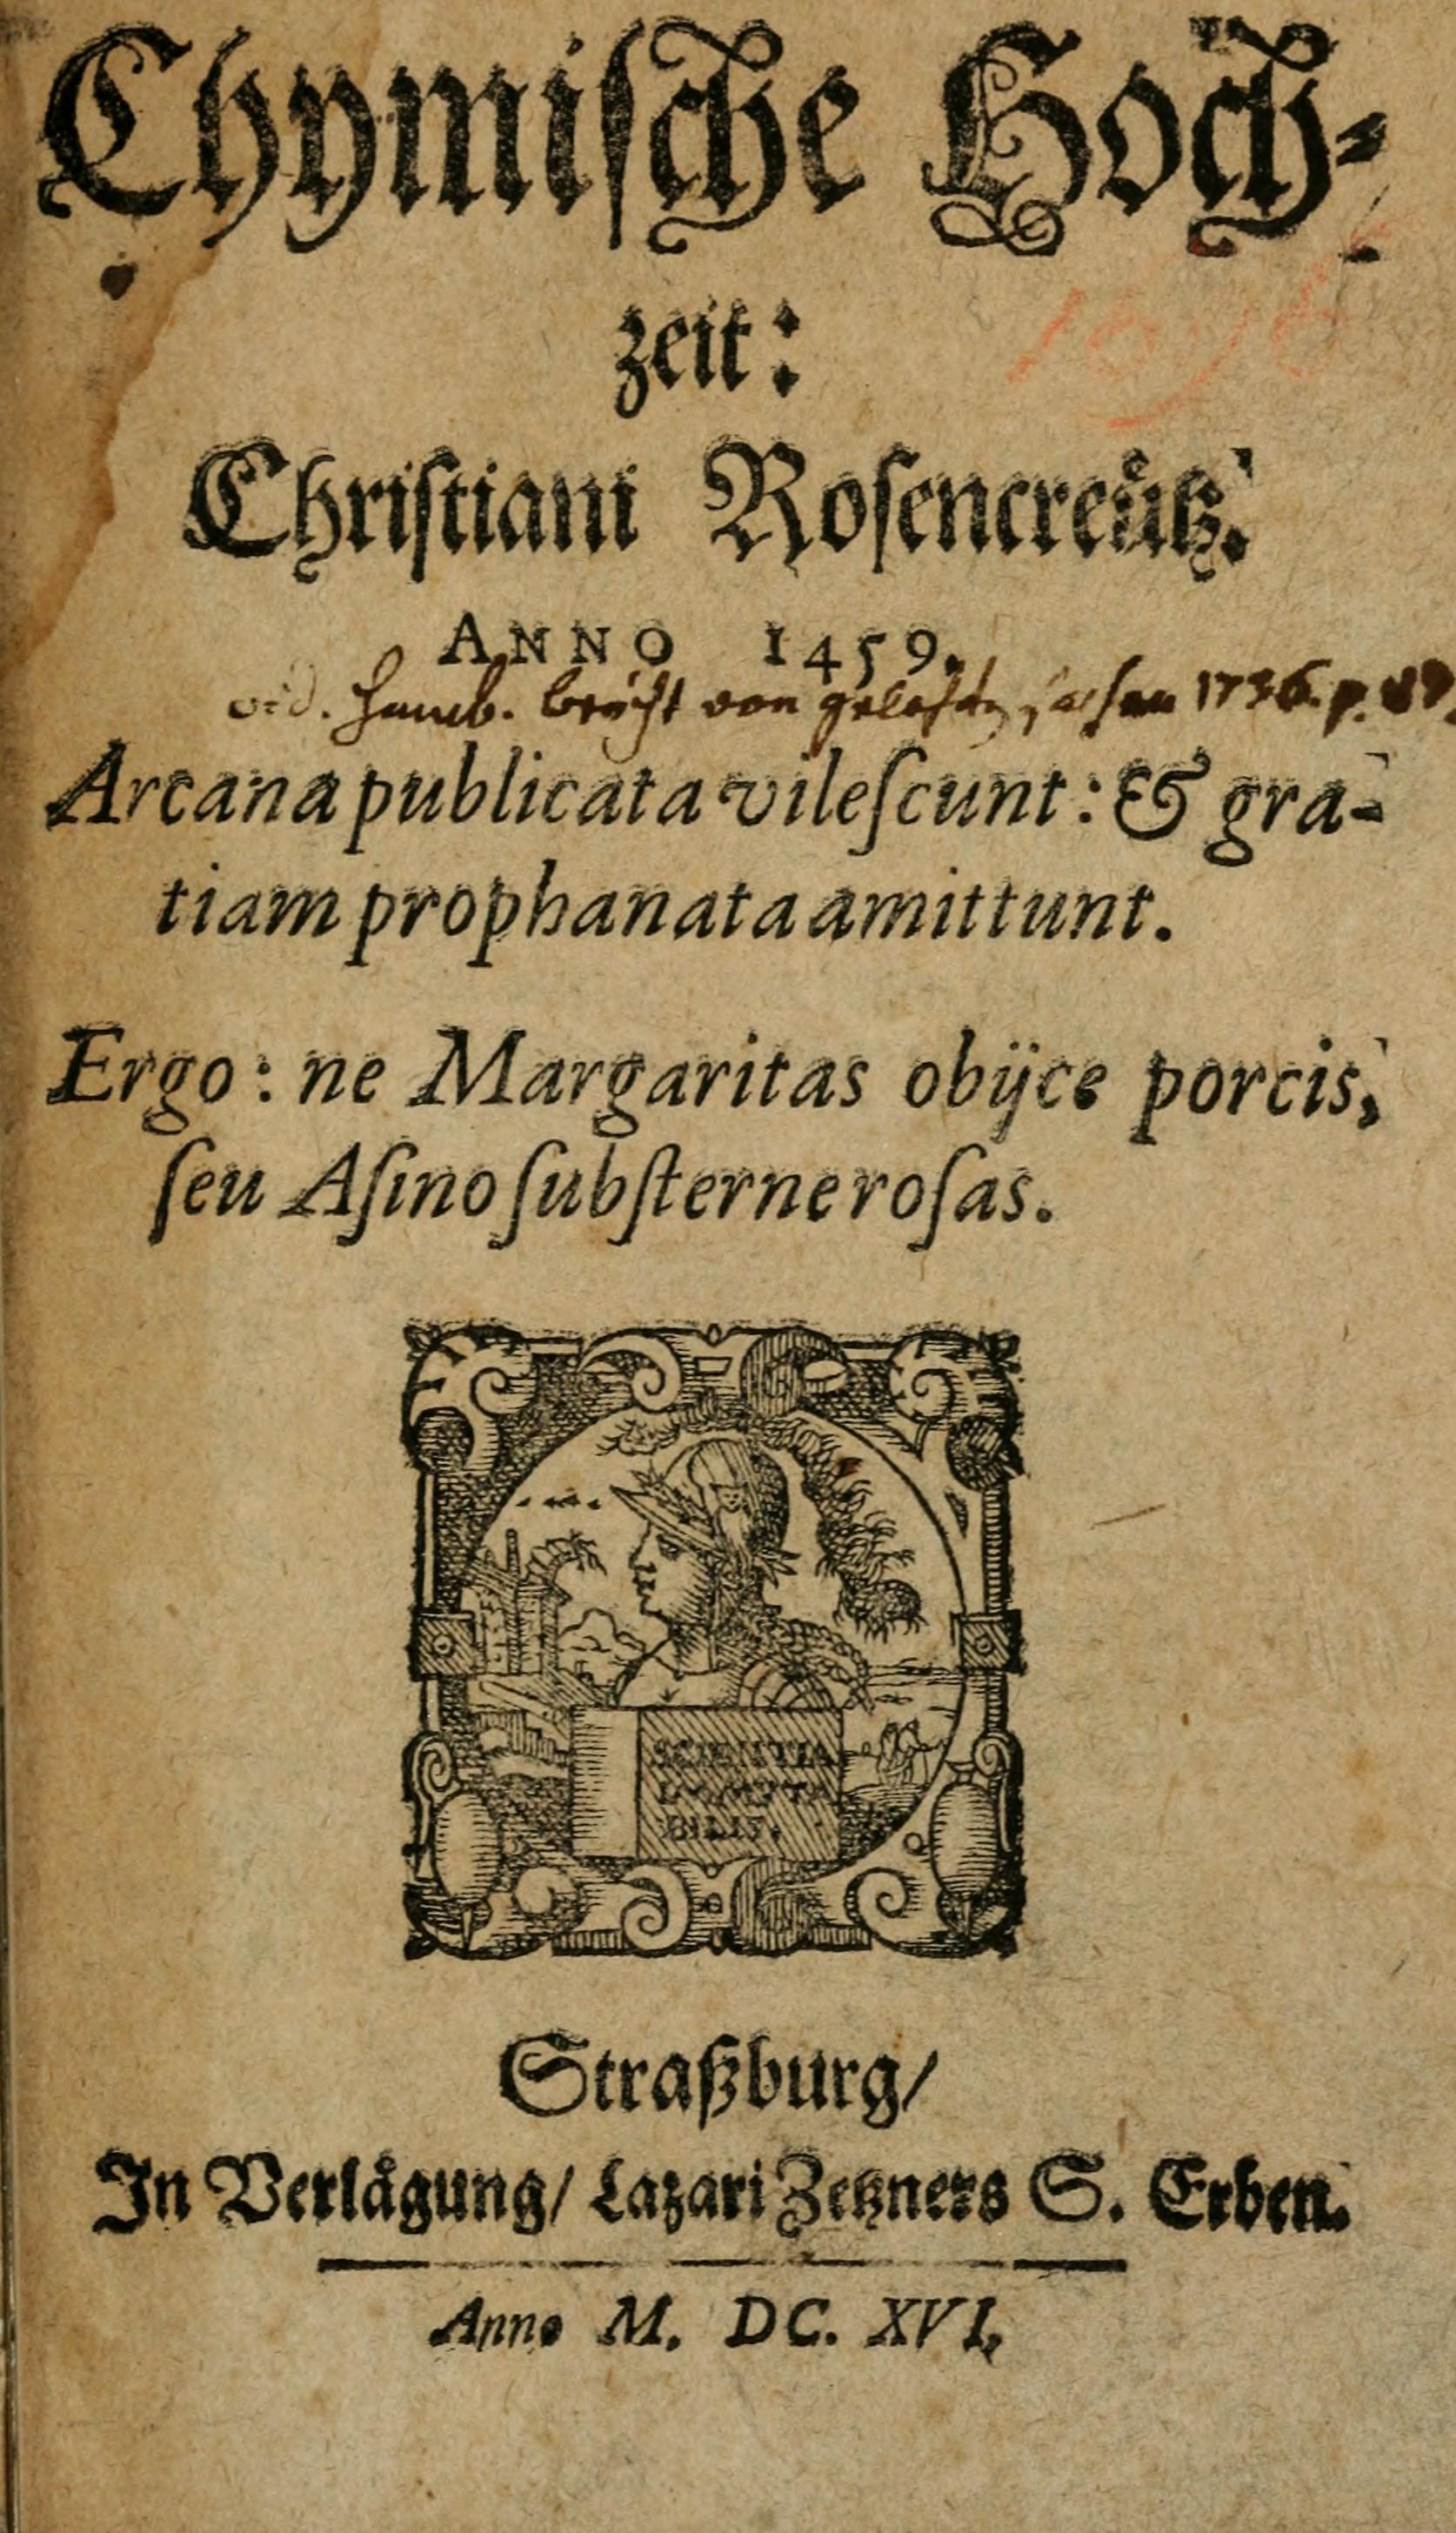 Chymiſche Hoch-
zeit:
Chriſtiani Roſencreütz.
ANNO 1459.
vid. Hamb. bericht von 1736. p.
Arcana publicata vileſcunt: & gra-
tiam prophanata amittunt.
Ergo: ne Margaritas obijce porcis,
ſeu Aſino ſubſterne roſas.
SCIENTIA
IMMVTA
BILIS.
Straßburg/
In Verlägung/ Lazari Zetzners S. Erben.
Anno M. DC. XVI.